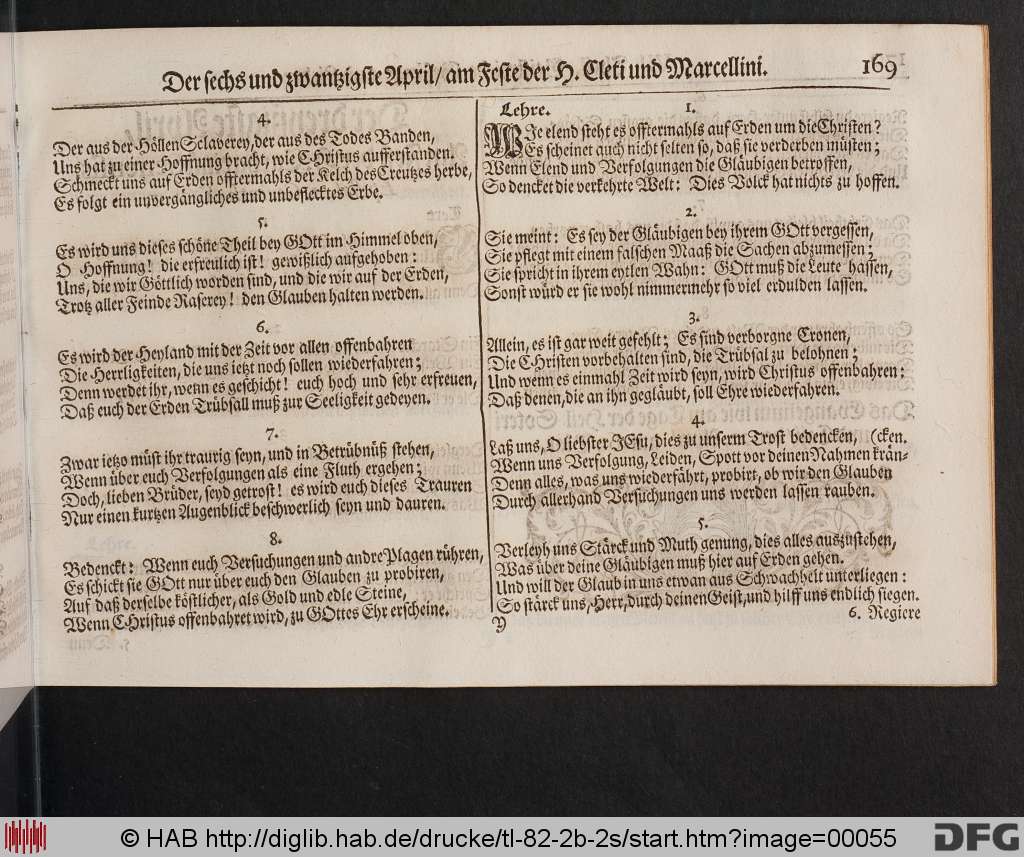 Der sechs und zwantzigste April/ am Feste der H. Cleti und Marcellini. 169
4.
Der aus der Höllen Sclaverey, der aus des Todes Banden,
Uns hat zu einer Hoffnung bracht, wie CHristus aufferstanden.
Schmeckt uns auf Erden offtermahls der Kelch des Creutzes herbe,
Es folgt ein unvergängliches und unbeflecktes Erbe.
5.
Es wird uns dieses schöne Theil bey GOtt im Himmel oben,
O Hoffnung! die erfreulich ist! gewißlich aufgehoben:
Uns, die wir Göttlich worden sind, und die wir auf der Erden,
Trotz aller Feinde Raserey! den Glauben halten werden.
6.
Es wird der Heyland mit der Zeit vor allen offenbahren
Die Herrligkeiten, die uns ietzt noch sollen wiederfahren;
Denn werdet ihr, wenn es geschicht! euch hoch und sehr erfreuen,
Daß euch der Erden Trübsall muß zur Seeligkeit gedeyen.
7.
Zwar ietzo müst ihr traurig seyn, und in Betrübnüß stehen,
Wenn über euch Verfolgungen als eine Fluth ergehen;
Doch, lieben Brüder, seyd getrost! es wird euch dieses Trauren
Nur einen kurtzen Augenblick beschwerlich seyn und dauren.
8.
Bedenckt: Wenn euch Versuchungen und andre Plagen rühren,
Es schickt sie GOtt nur über euch den Glauben zu probiren,
Auf daß derselbe köstlicher, als Gold und edle Steine,
Wenn CHristus offenbahret wird, zu GOttes Ehr erscheine.
Lehre. 1.
WJe elend steht es offtermahls auf Erden um die Christen?
Es scheinet auch nicht selten so, daß sie verderben müsten;
Wenn Elend und Verfolgungen die Gläubigen betroffen,
So dencket die verkehrte Welt: Dies Volck hat nichts zu hoffen.
2.
Sie meint: Es sey der Gläubigen bey ihrem GOtt vergessen,
Sie pflegt mit einem falschen Maaß die Sachen abzumessen;
Sie spricht in ihrem eytlen Wahn: GOtt muß die Leute hassen,
Sonst würd er sie wohl nimmermehr so viel erdulden lassen.
3.
Allein, es ist gar weit gefehlt; Es sind verborgne Cronen,
Die CHristen vorbehalten sind, die Trübsal zu belohnen;
Und wenn es einmahl Zeit wird seyn, wird Christus offenbahren:
Daß denen, die an ihn gegläubt, soll Ehre wiederfahren.
4.
Laß uns, O liebster JEsu, dies zu unserm Trost bedencken, (cken.
Wenn uns Verfolgung, Leiden, Spott vor deinen Nahmen krän-
Denn alles, was uns wiederfährt, probirt, ob wir den Glauben
Durch allerhand Versuchungen uns werden lassen rauben.
5.
Verleyh uns Stärck und Muth genung, dies alles auszustehen,
Was über deine Gläubigen muß hier auf Erden gehen.
Und will der Glaub in uns etwan aus Schwachheit unterliegen:
So stärck uns, Herr, durch deinen Geist, und hilff uns endlich siegen.
Y 6. Regiere
© HAB http://diglib.hab.de/drucke/tl-82-2b-2s/start.htm?image=00055
DFG